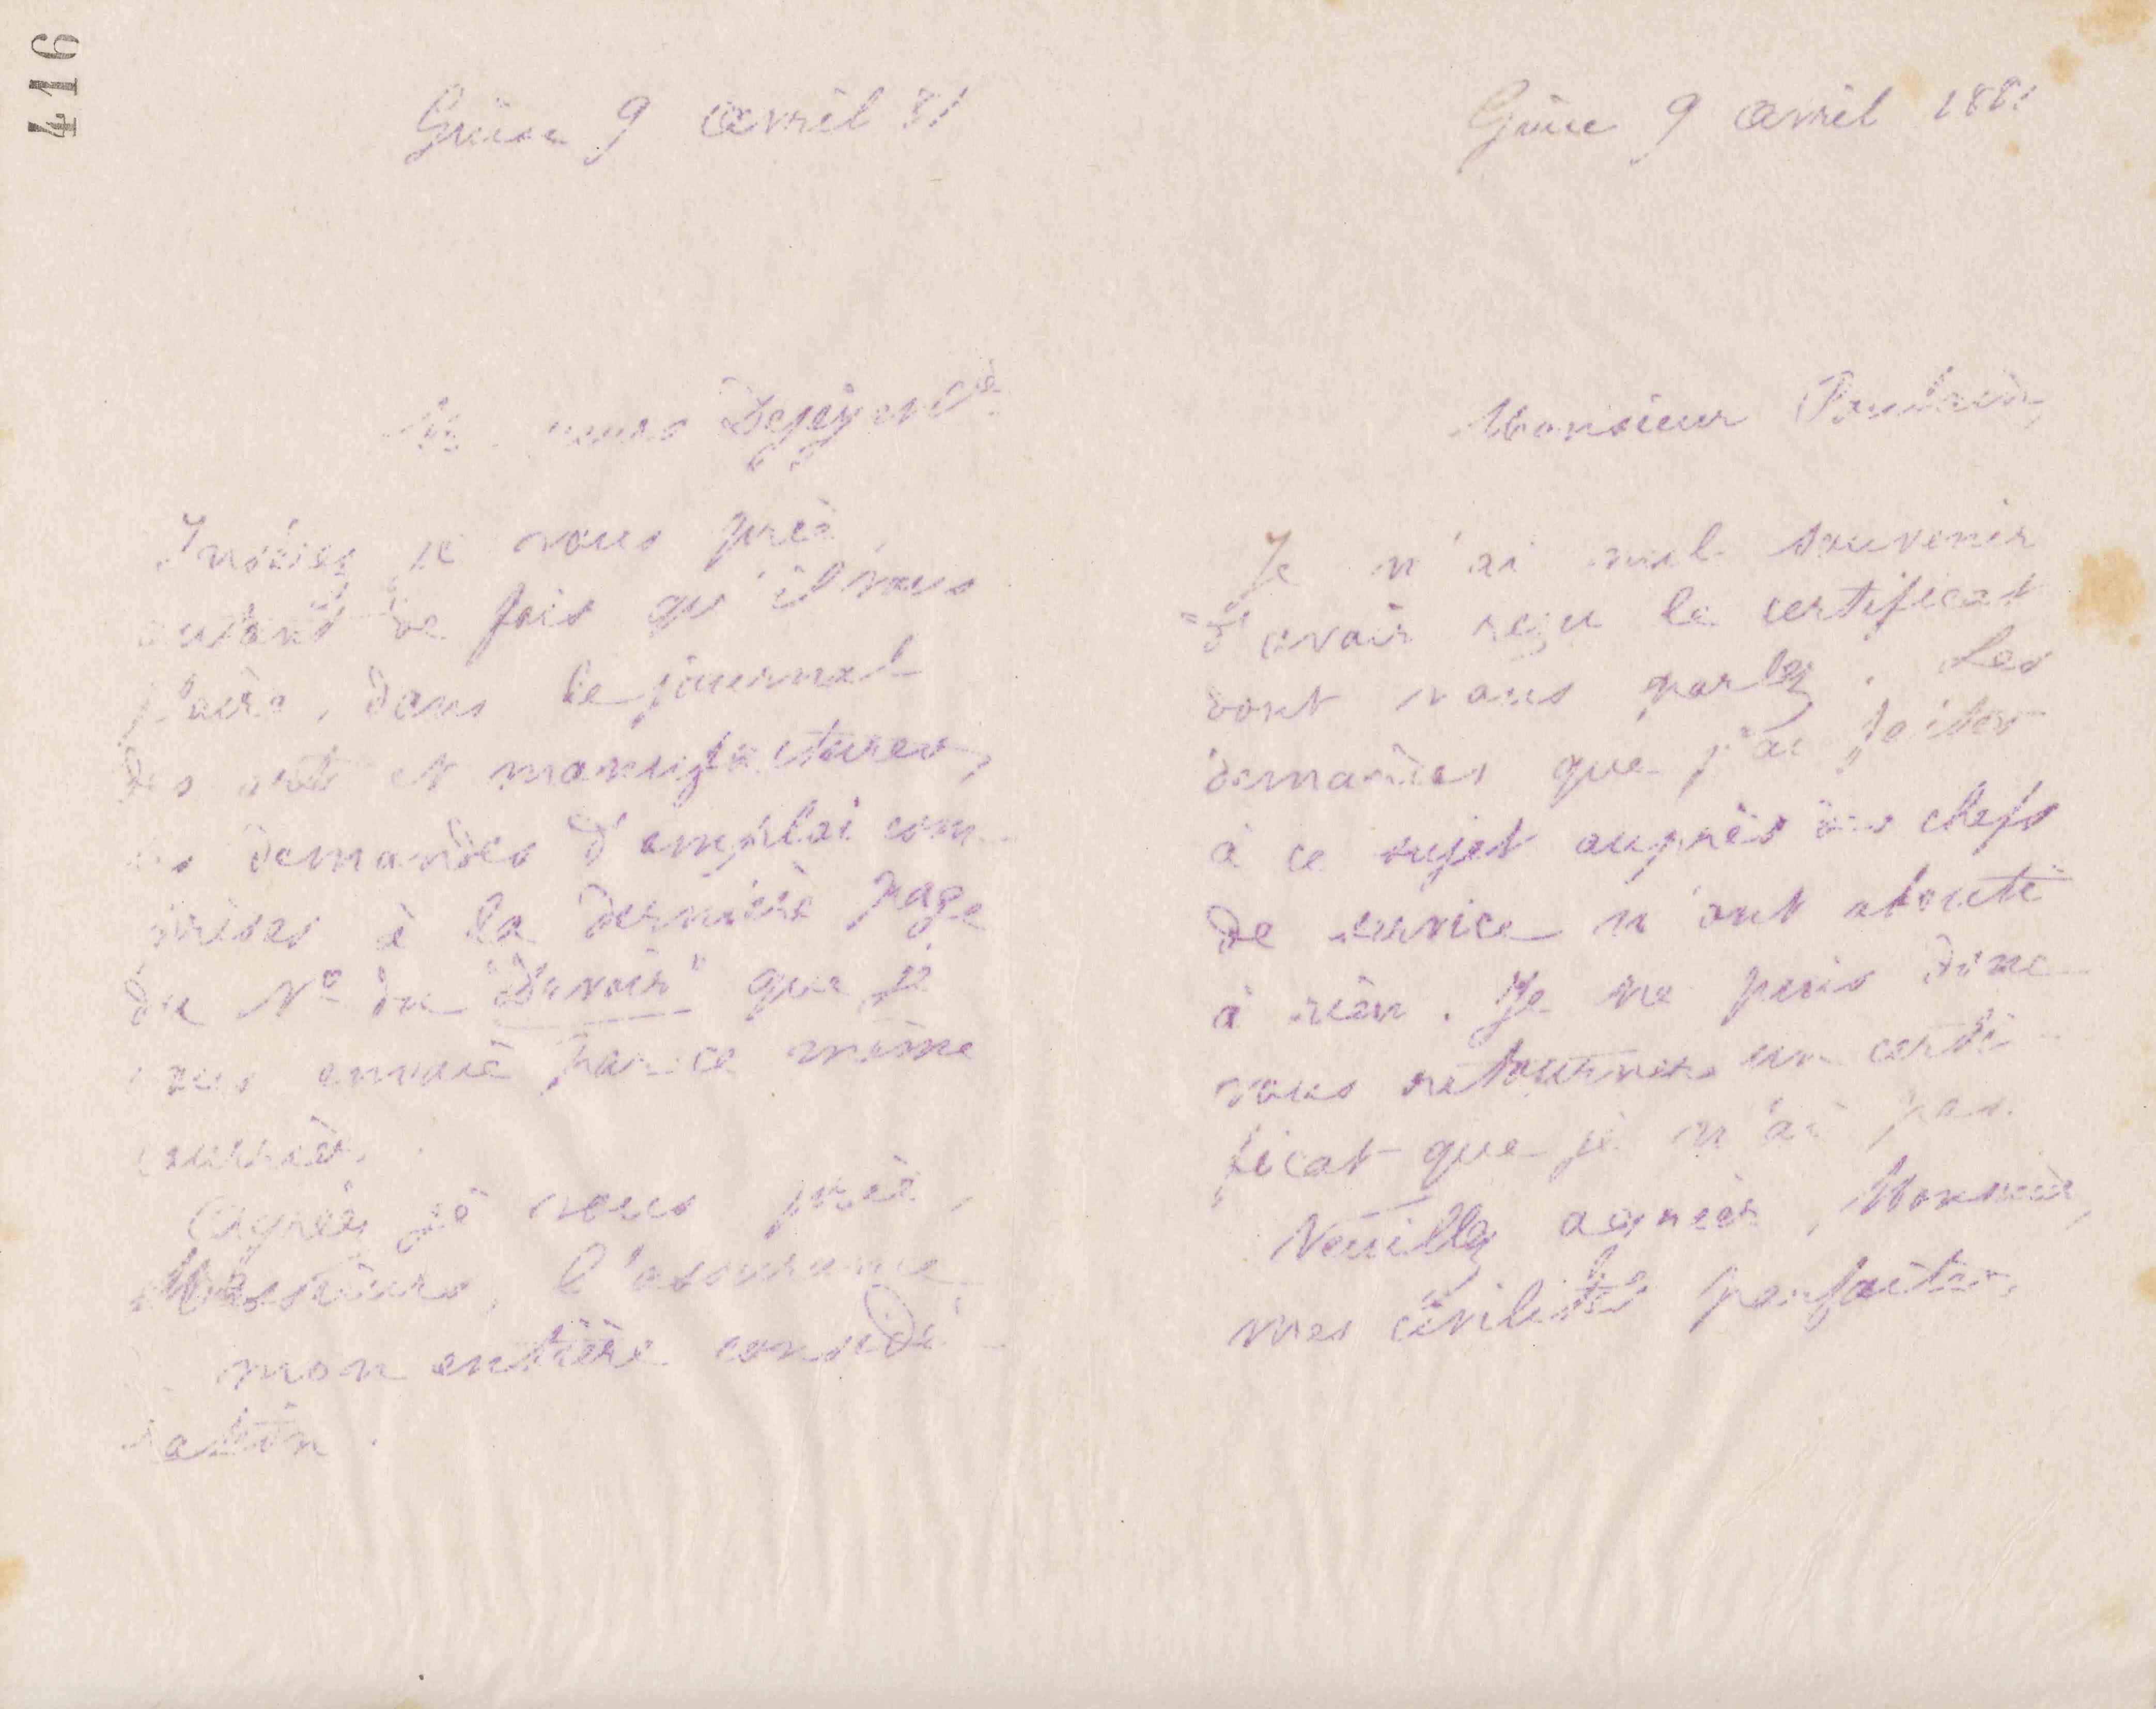 416
Guise 9 avril 81
Messieurs
Insérez je vous prie
autant de fois qu'il vous
plaira, dans le journal
des arts et manufactures,
les demandes d'emploi com-
prises à la dernière page
du Nº du "Devoir" que je
vous envoie par ce même
courrier.
Agréez je vous prie,
Messieurs, l'assurance
mon entière considé-
ration.
Guise 9 avril 1881
Monsieur
Je n'ai nul souvenir
d'avoir reçu le certificat
dont vous parlez. Les
demandes que j'ai faites
à ce sujet auprès des chefs
de service n'ont abouti
à rien. Je ne puis donc
vous retourner un certi-
ficat que je n'ai pas.
Veuillez agréer, Monsieur,
mes civilités parfaites.